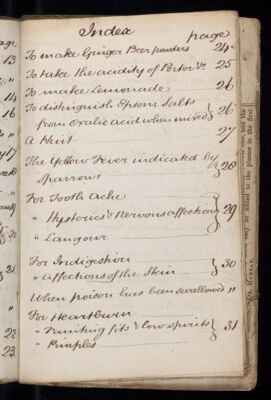 Index
page
To make Ginger Beer powders 24
To take the acidity of Porter &c. 25
To make Lemonade 26
To distinguish Epsom Salts
from Oxalic acid when mixed } 26
A Hint 27
The Yellow Fever indicated by
Sparrows } 28
For Tooth Ache
" Hysterics & Nervous affection } 29
" Langour
For Indigestion
" Affections of the Skin } 30
When poison has been swallowed "
For Heartburn
" Fainting fits & low spirits } 31
" Pimples
page
13
"
14
16
"
17
"
21
"
22
23